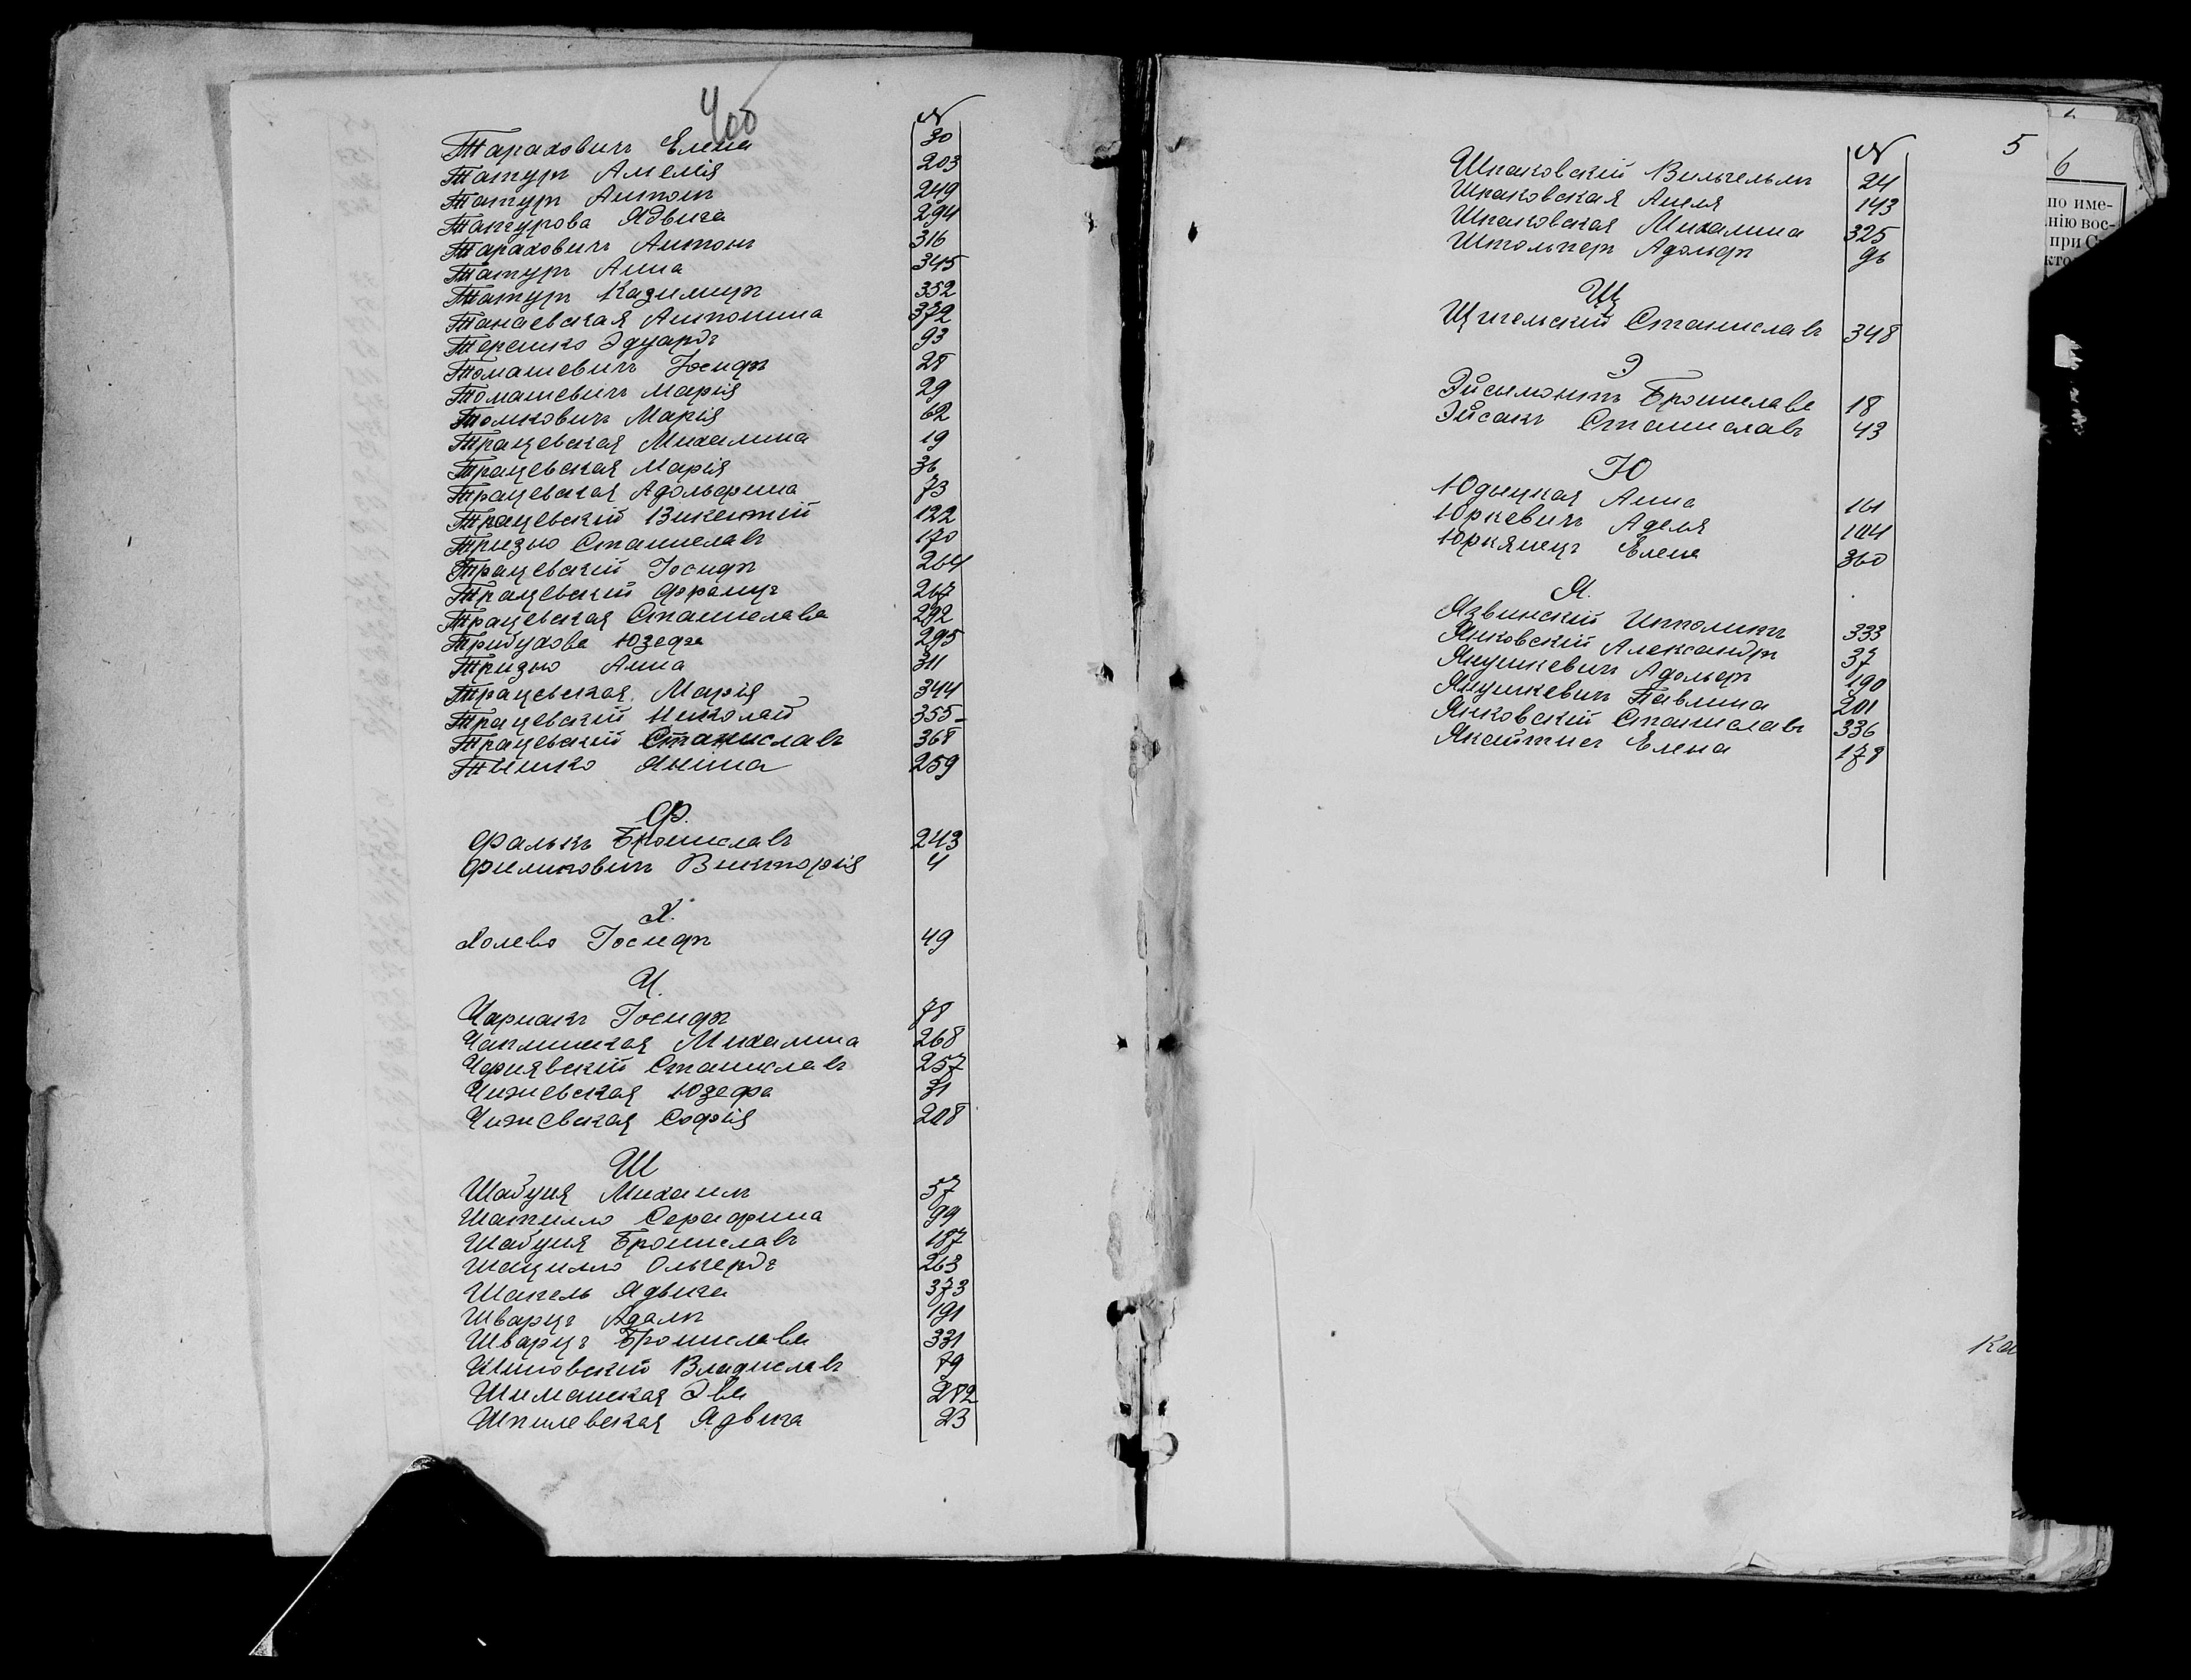 4об
N
Тараховичъ Елена 30
Татуръ Амелія 203
Татуръ Антонъ 249
Татурова Ядвига 294
Тараховичъ Антонъ 316
Татуръ Анна 345
Татуръ Казимиръ 352
Танаевская Антонина 372
Терешко Эдуардъ 93
Томашевичъ Іосифъ 28
Томашевичъ Марія 29
Толковичъ Марія 62
Трацевская Михалина 19
Трацевская Марія 36
Трацевская Адольфина 73
Трацевскій Викентій 122
Тризно Станиславъ 170
Трацевскій Іосифъ 264
Трацевскій Францъ 267
Трацевская Станислава 292
Трибухова Юзефа 295
Тризно Анна 311
Трацевская Марія 344
Трацевскій Николай 355
Трацевскій Станиславъ 368
Янина 259
Ф.
Фалькъ Брониславъ 243
Филиповичъ Викторія 4
Х.
Холево Іосифъ 49
Ч.
Чарнакъ Іосифъ 78
Чаплинская Михалина 268
Чернявскій Станиславъ 257
Чижевская Юзефа 31
Чижевская Софія 208
Ш
Шабуня Михаилъ 57
Шатилло Серафина 99
Шабуня Брониславъ 187
Шацилло Ольгердъ 263
Шапель Ядвига 373
Шварцъ Адамъ 191
Шварцъ Бронислава 331
Владиславъ 79
Шиманская Эва 282
Шпилевская Ядвига 23
5
N
Шпаковскій Вильгельмъ 24
Шпаковская Анеля 143
Шпаковская Михалина 325
Штольперъ Адольфъ 96
Щ
Щигельскій Станиславъ 348
Э
Эйсымонтъ Бронислава 18
Эйсакъ Станиславъ 43
Ю
Юдыцкая Анна 161
Юркевичъ Аделя 104
Юркянецъ Елена 360
Я.
Язвинскій Ипполитъ 333
Янковскій Александръ 37
Янушкевичъ Адольфъ 190
Янушкевичъ Павлина 201
Янковскій Станиславъ 336
Якайтисъ Елена 178
6
по име-
нію вос-
при С
кто
Ка